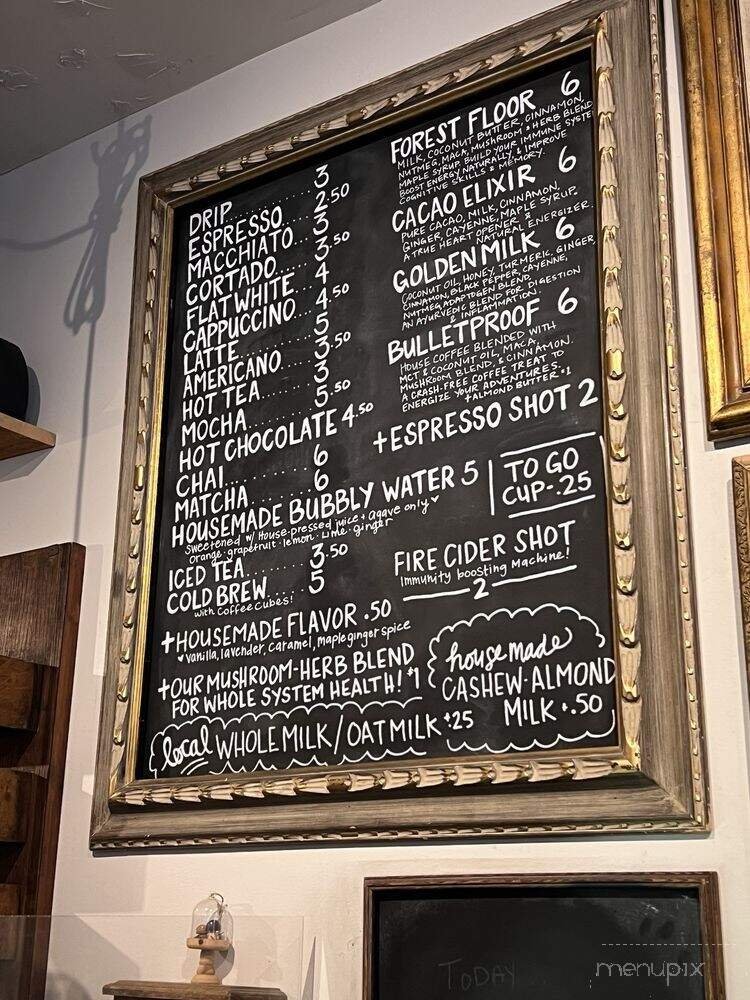 DRIP........3
ESPRESSO....2.50
MACCHIATO...3
CORTADO....3.50
FLAT WHITE...4
CAPPUCCINO...4.50
LATTE........5
AMERICANO....3.50
HOT TEA......3
MOCHA........5.50
HOT CHOCOLATE 4.50
CHAI.........6
MATCHA.......6
HOUSEMADE BUBBLY WATER 5
Sweetened w/ House-pressed juice + agave only ♥
orange · grapefruit · lemon · lime · ginger
ICED TEA......3.50
COLD BREW.....5
with Coffee Cubes!
+HOUSEMADE FLAVOR .50
♥ vanilla, lavender, caramel, maple ginger spice
+OUR MUSHROOM-HERB BLEND
FOR WHOLE SYSTEM HEALTH! +1
local WHOLE MILK/OAT MILK +.25
FOREST FLOOR 6
MILK, COCONUT BUTTER, CINNAMON,
NUTMEG, MACA, MUSHROOM & HERB BLEND
MAPLE SYRUP. BUILD YOUR IMMUNE SYSTEM
BOOST ENERGY NATURALLY & IMPROVE
COGNITIVE SKILLS & MEMORY.
CACAO ELIXIR 6
PURE CACAO, MILK, CINNAMON,
GINGER, CAYENNE, MAPLE SYRUP.
A TRUE HEART OPENER &
NATURAL ENERGIZER.
GOLDEN MILK 6
COCONUT OIL, HONEY, TURMERIC, GINGER,
CINNAMON, BLACK PEPPER, CAYENNE,
NUTMEG, ADAPTOGEN BLEND,
AN AYURVEDIC BLEND FOR DIGESTION
& INFLAMMATION.
BULLETPROOF 6
HOUSE COFFEE BLENDED WITH
MCT & COCONUT OIL, MACA,
MUSHROOM BLEND, & CINNAMON.
A CRASH-FREE COFFEE TREAT TO
ENERGIZE YOUR ADVENTURES.
+ALMOND BUTTER +1
+ESPRESSO SHOT 2
TO GO
CUP-.25
FIRE CIDER SHOT
Immunity boosting Machine!
2
housemade
CASHEW-ALMOND
MILK +.50
TODAY
menupix